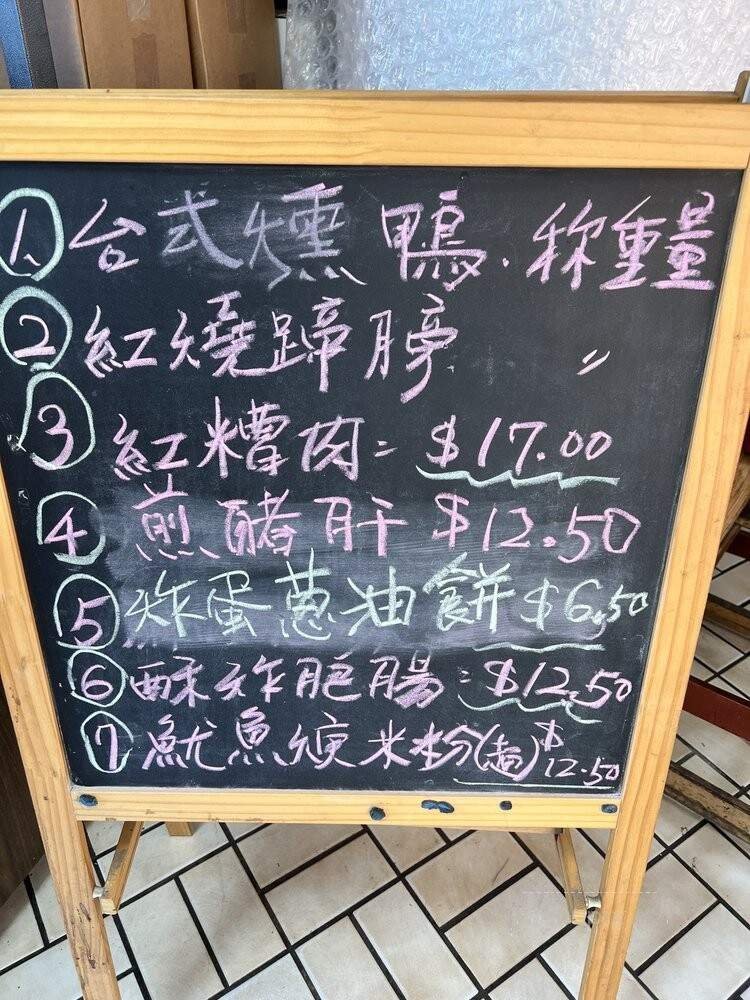 1. 台式燻鴨. 称重量
2 紅燒蹄膀 〃
3 紅糟肉: $17.00
4 煎豬肝 $12.50
5 炸蛋蔥油餅 $6.50
6 酥炸肥腸: $12.50
7 魷魚焿米粉(麵) $12.50